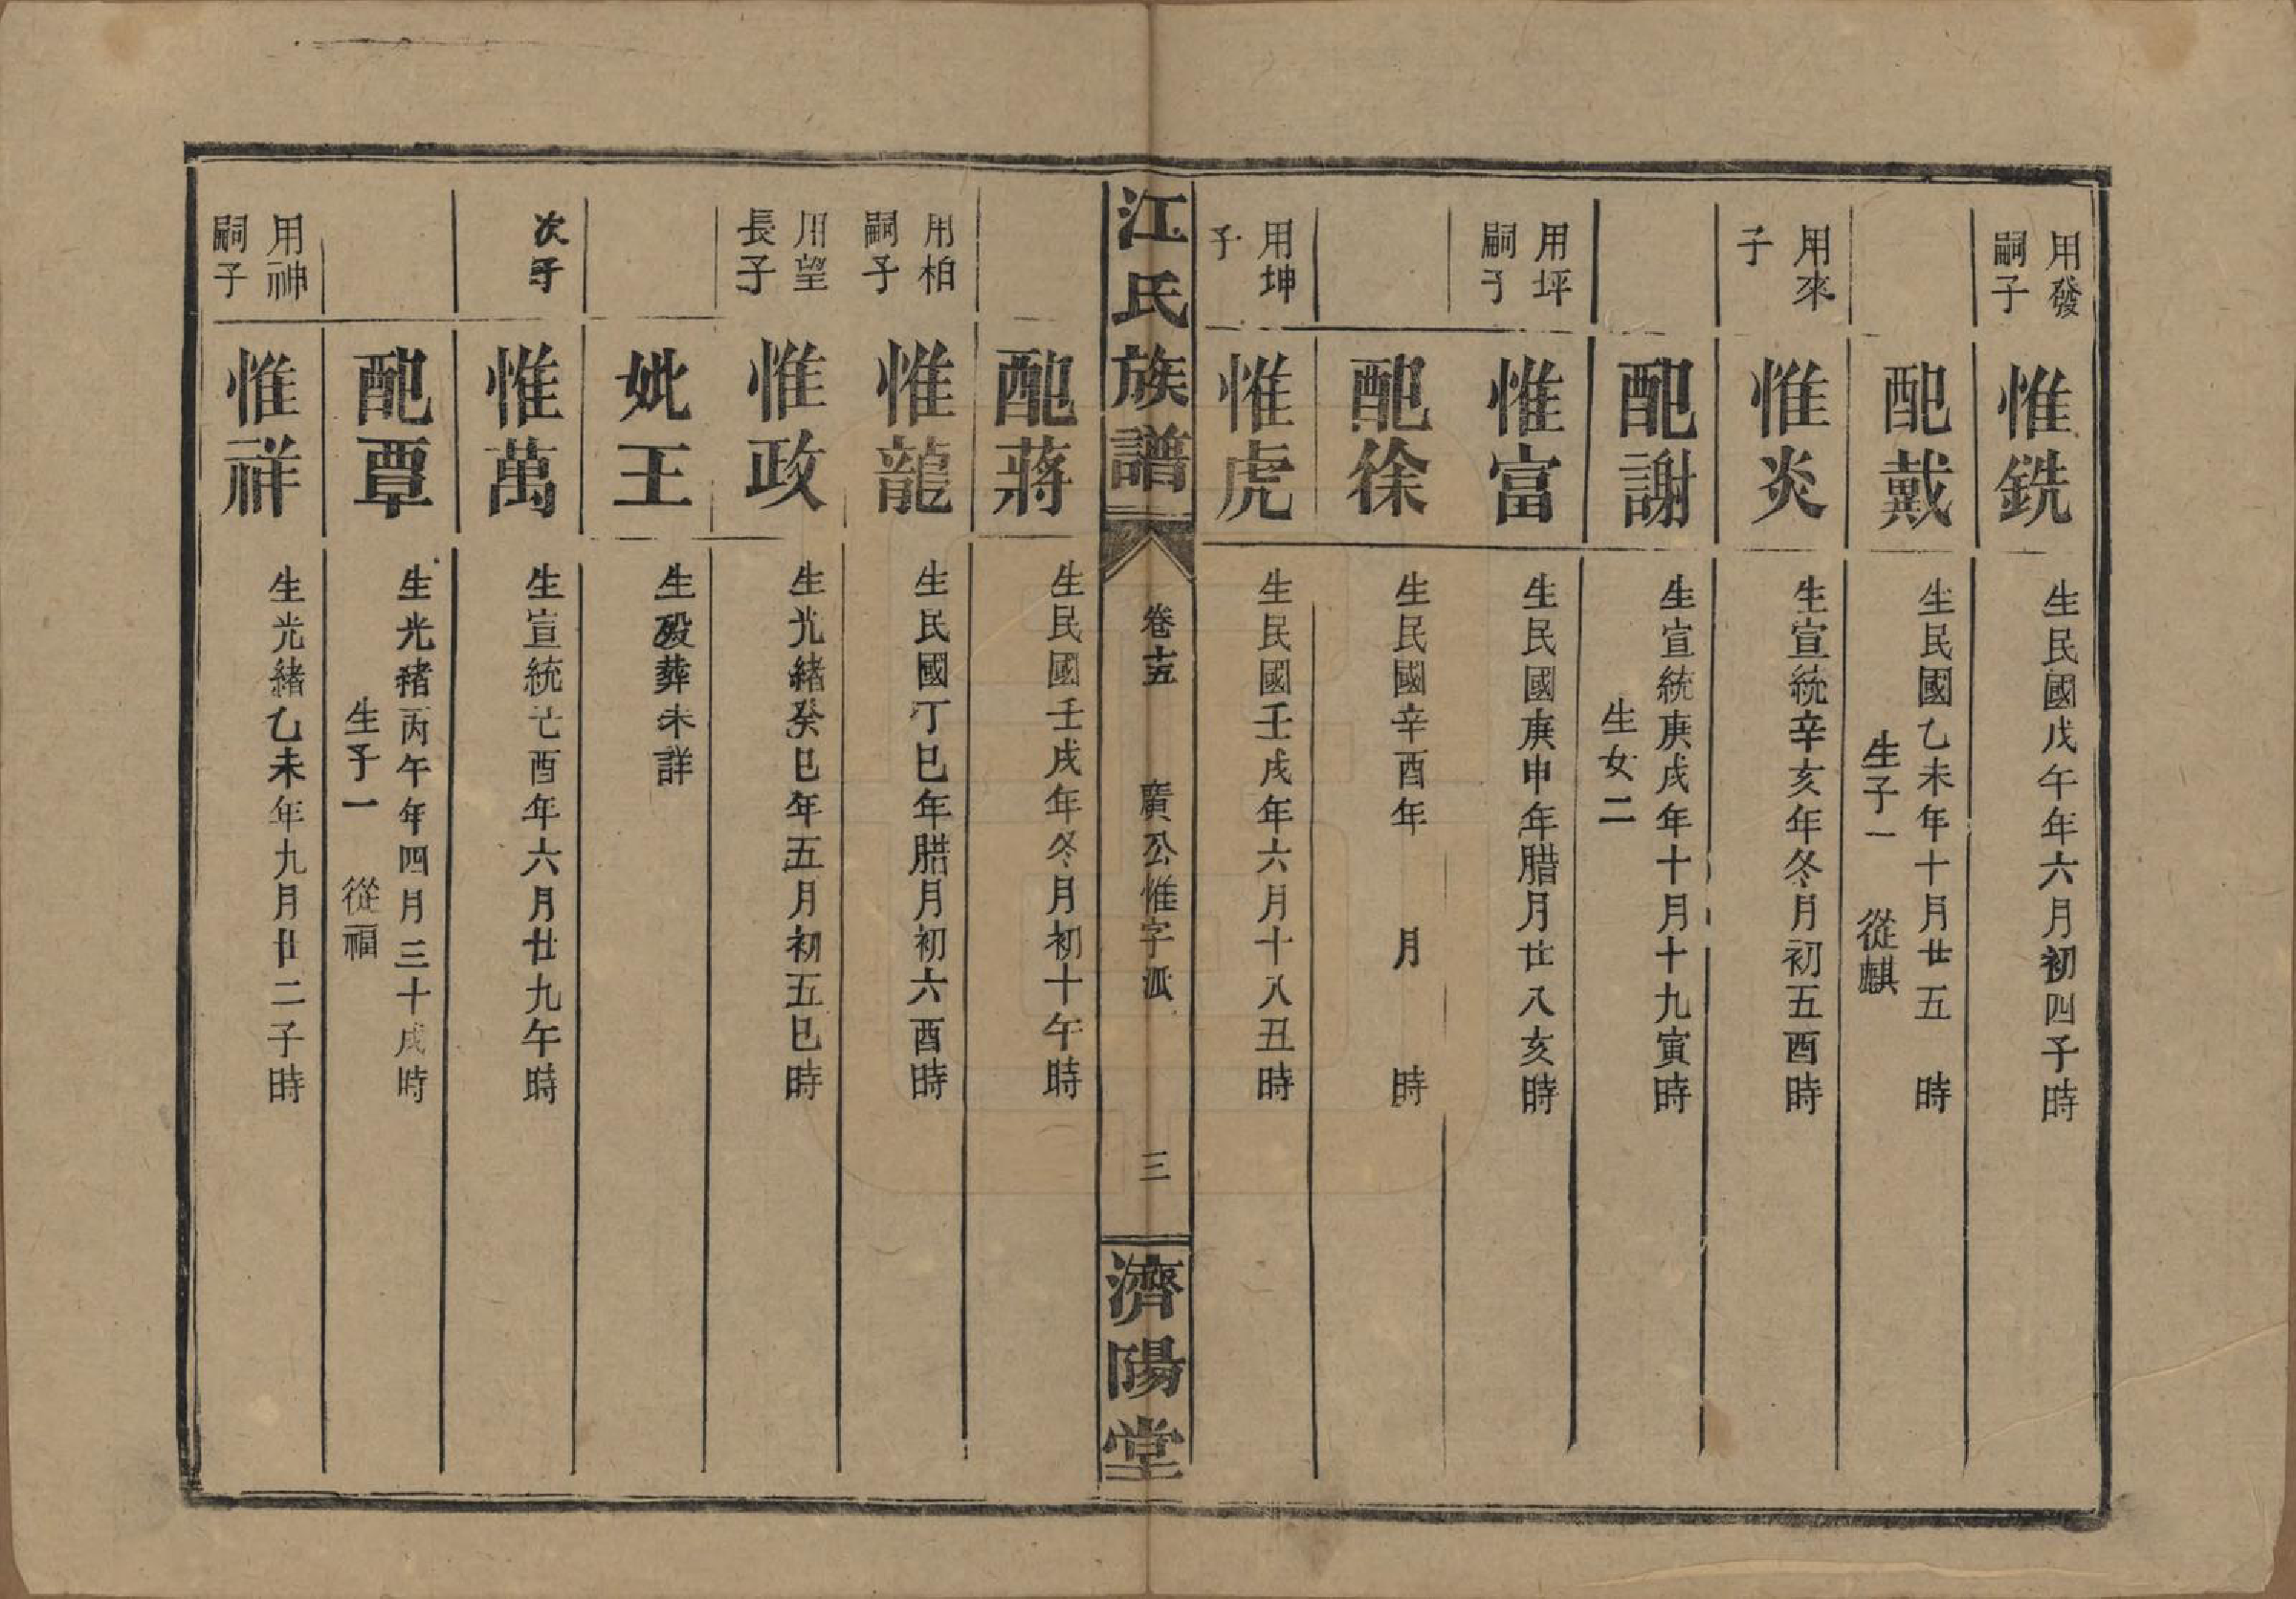 用發
嗣子
惟銑
生民國戊午年六月初四子時
配戴
生民國乙未年十月廿五 時
生子一 從麒
用來
子
惟炎
生宣統辛亥年冬月初五酉時
配謝
生宣統庚戌年十月十九寅時
生女二
用坪
嗣子
惟富
生民國庚申年腊月廿八亥時
配徐
生民國辛酉年 月 時
用坤
子
惟虎
生民國壬戌年六月十八丑時
江氏族譜 卷十五 廣公惟字派 三 濟陽堂
配蔣
生民國壬戌年冬月初十午時
用柏
嗣子
惟龍
生民國丁巳年腊月初六酉時
用望
長子
惟政
生光緒癸巳年五月初五巳時
妣王
生殁葬未詳
次子
惟萬
生宣統 酉年六月廿九午時
配覃
生光緒丙午年四月三十戌時
生子一 從福
用神
嗣子
惟祥
生光緒乙未年九月廿二子時